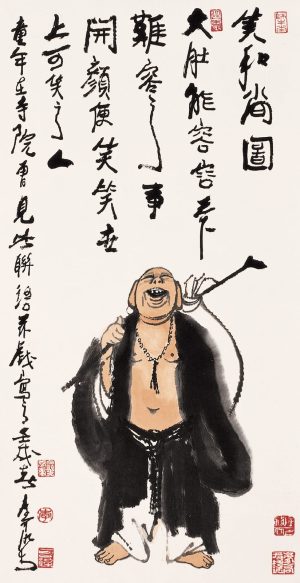 笑和尚圖
大肚能容容天下
難容之事
開顏便笑笑世
上可笑之人
童年在寺院曾見此聯語戲寫之